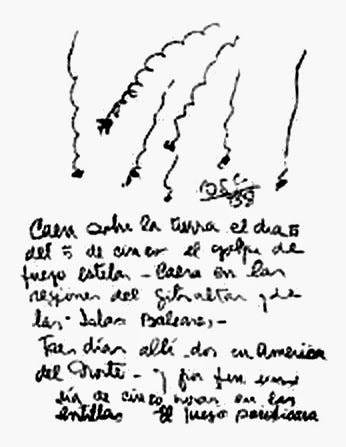 BSP
38
Caera sobre la tierra el dia 5
del 5 de cinco el golpe de
fuego estelar - Caera en las
regiones del Gibraltar y de
las Islas Baleares -
Tres dias allí dos en America
del Norte - y por fin
dia de cinco horas en las
antillas El fuego